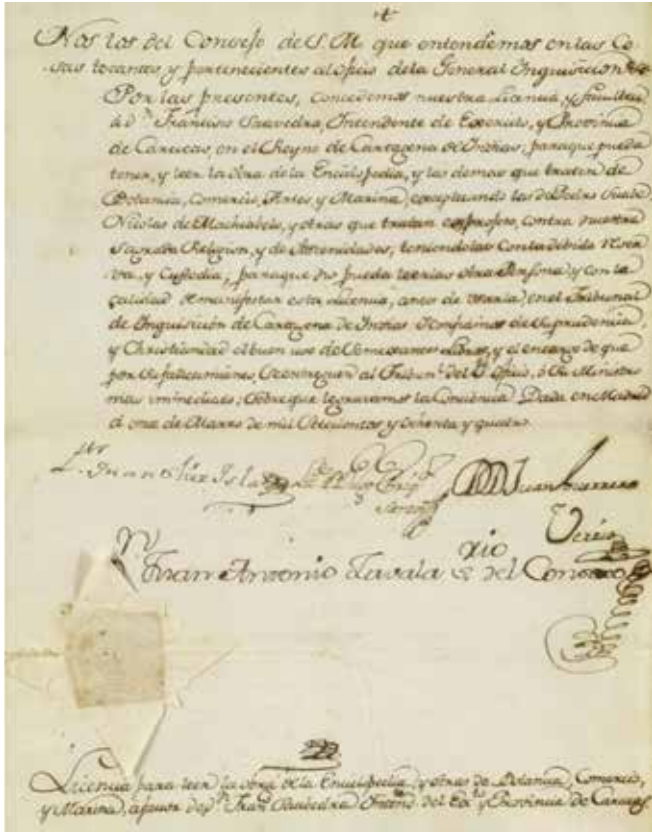 Nos los del Consejo de S. M. que entendemos en las Co-
sas tocantes y pertenecientes al oficio de la General Inquisicion &c
Por las presentes, concedemos nuestra Licencia, y facultad
á Dn. Francisco Saavedra, Intendente de Exercito, y Provincia
de Caracas, en el Reyno de Cartagena de Indias, para que pueda
tener, y leer la obra de la Enciclopedia, y las demas que traten de
Botanica, Comercio, Artes y Marina, exceptuando las de Pedro Suabe,
Nicolas de Machiabelo, y otras que tratan exprofeso, contra nuestra
Sagrada Religion, y de obscenidades, teniendolas con la debida reser
va, y Custodia, para que no pueda leerlas otra Persona, y con la
calidad de manifestar esta Licencia, antes de usarla, en el Tribunal
de Inquisición de Cartagena de Indias de su prudencia,
y Christiandad el buen uso de semejantes Libros, y el encargo de que
por su fallecimiento, se entreguen al Tribunl. del Sto. Oficio, ó su Ministro
mas inmediato; sobre que le gravamos la Conciencia. Dada en Madrid
á once de Marzo de mil setecientos y ochenta y quatro.
Juan
Antonio del Consejo
Licencia para leer la obra de la Enciclopedia, y otras de Botanica, Comercio,
y Marina, a favor de Dn. Franco. Saavedra Intend. del Exto. y Provincia de Caracas.